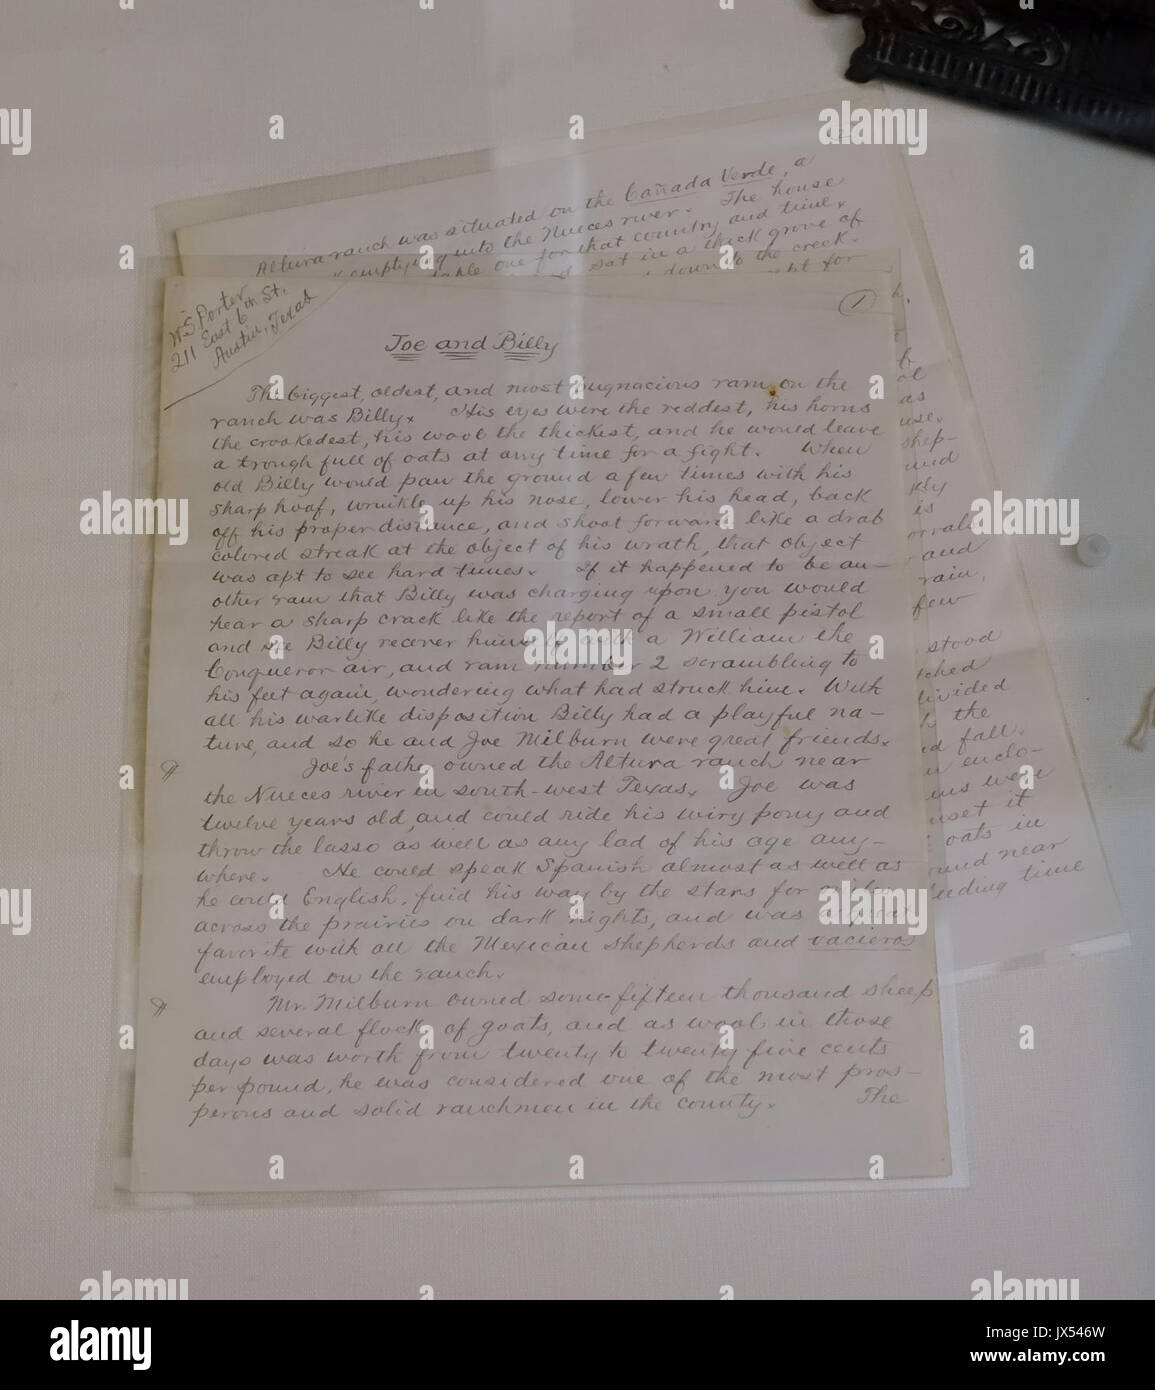 Altura ranch was situated on the Cañada Verde, a
emptying into the Nueces river. The house
one for that country and time.
sat in a thick grove of
down to the creek.
for
W.S. Porter
211 East 6th St.
Austin, Texas
1
Joe and Billy
The biggest, oldest, and most pugnacious ram on the
ranch was Billy. His eyes were the reddest, his horns
the crookedest, his wool the thickest, and he would leave
a trough full of oats at any time for a fight. When
old Billy would paw the ground a few times with his
sharp hoof, wrinkle up his nose, lower his head, back
off his proper distance, and shoot forward like a drab
colored streak at the object of his wrath, that object
was apt to see hard times. If it happened to be an-
other ram that Billy was charging upon you would
hear a sharp crack like the report of a small pistol
and see Billy recover himself with a William the
Conqueror air, and ram number 2 scrambling to
his feet again, wondering what had struck him. With
all his warlike disposition Billy had a playful na-
ture, and so he and Joe Milburn were great friends.
Joe's father owned the Altura ranch near
the Nueces river in south-west Texas. Joe was
twelve years old, and could ride his wiry pony and
throw the lasso as well as any lad of his age any-
where. He could speak Spanish almost as well as
he could English, find his way by the stars for miles
across the prairies on dark nights, and was a great
favorite with all the Mexican shepherds and vacieros
employed on the ranch.
Mr. Milburn owned some fifteen thousand sheep
and several flocks of goats, and as wool in those
days was worth from twenty to twenty five cents
per pound, he was considered one of the most pros-
perous and solid ranchmen in the county. The
as
use.
shep-
and
is
and
rain,
few
stood
divided
the
fall.
enclo-
were
it
oats in
near
time
alamy
JX546W
www.alamy.com